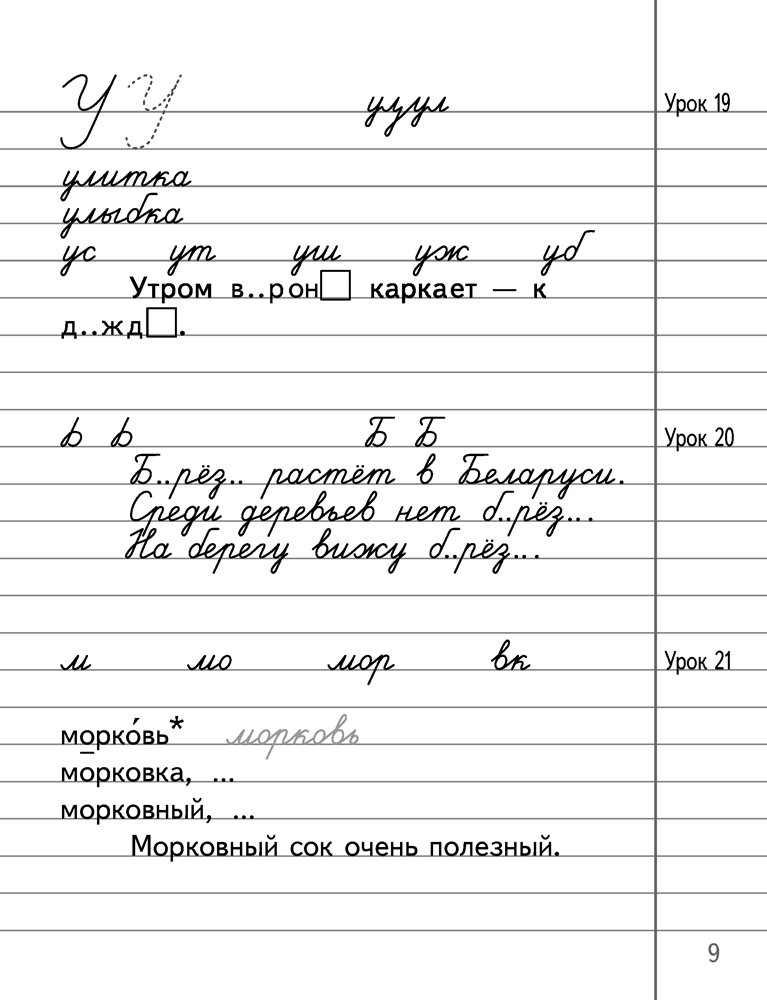 У У уууу Урок 19
улитка
улыбка
ус ут уш уж уб
Утром в..рон□ каркает — к
д..жд□.
Ь Ь Б Б Урок 20
Б..рёз.. растёт в Беларуси.
Среди деревьев нет б..рёз...
На берегу вижу б..рёз...
м мо мор вк Урок 21
морко́вь* морковь
морковка, ...
морковный, ...
Морковный сок очень полезный.
9